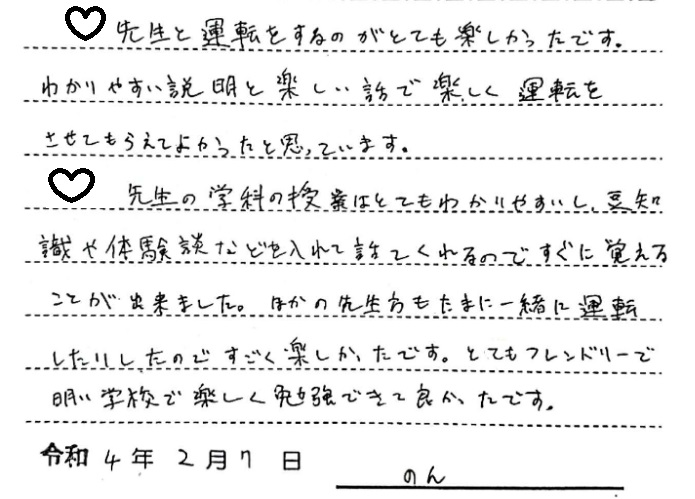 ♡ 先生と運転をするのがとても楽しかったです。
わかりやすい説明と楽しい話で楽しく運転を
させてもらえてよかったと思っています。
♡ 先生の学科の授業はとてもわかりやすいし、豆知
識や体験談などを入れて話てくれるのですぐに覚える
ことが出来ました。ほかの先生方もたまに一緒に運転
したりしたのですごく楽しかったです。とてもフレンドリーで
明い学校で楽しく勉強できて良かったです。
令和4年2月7日
のん